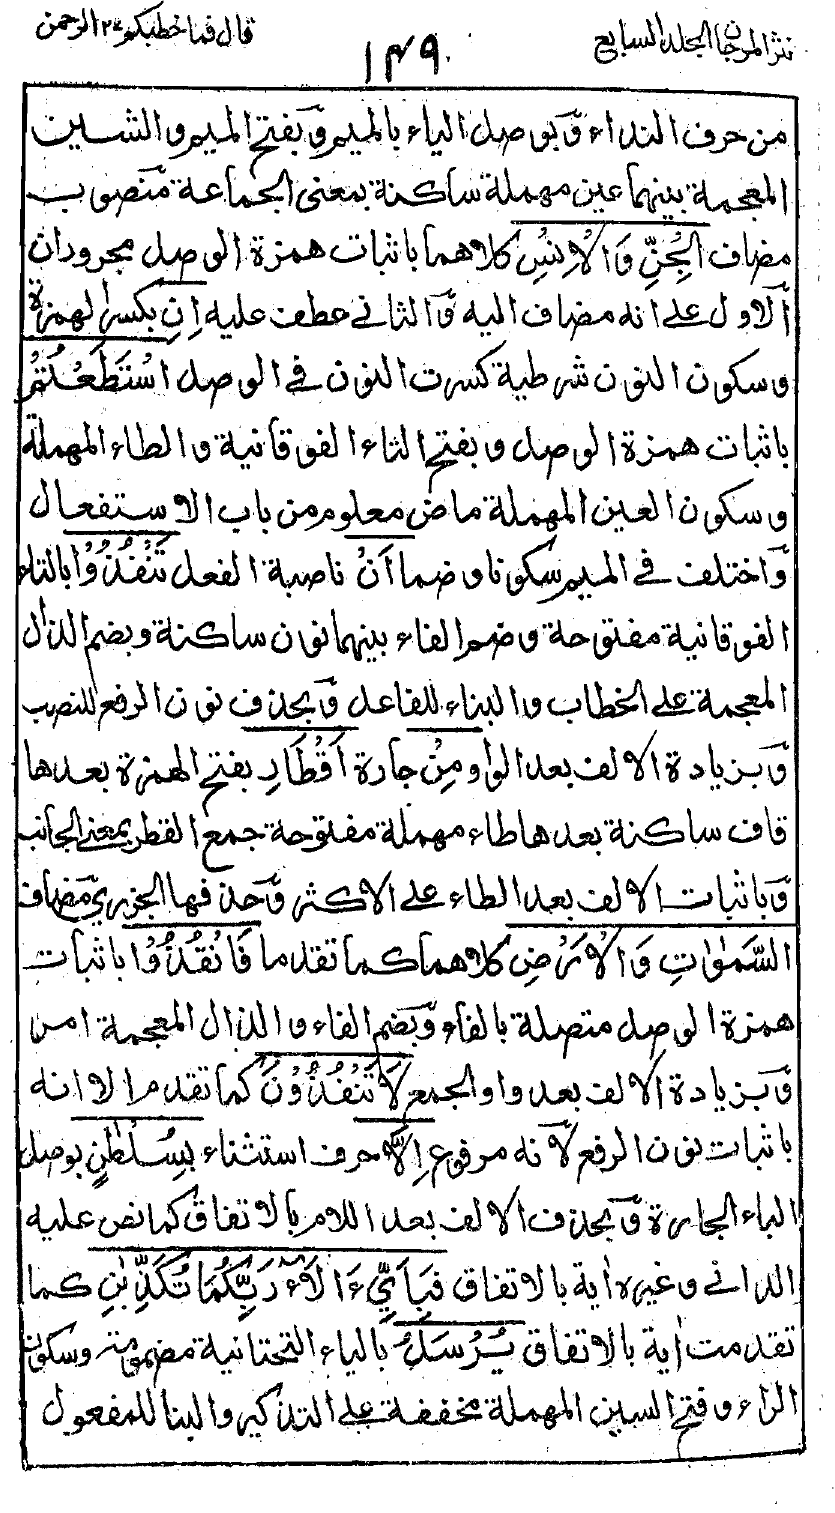 نثر المرجان الجلد السابع
١٤٩
قال فما خطبكم ٢٧ الرحمن
من حرف النداء وَبوصل الياء بالميم وَبفتح الميم والشين
المعجمة بينهما عين مهملة ساكنة بمعنى الجماعة منصوب
مضاف الْجِنِّ وَالْاِنْسِ كلاهما باثبات همزة الوصل مجروران
اَلاول على انه مضاف اليه وَالثاني عطف عليه اِنِ بكسر الهمزة
وسكون النون شرطية كسرت النون في الوصل اسْتَطَعْتُمْ
باثبات همزة الوصل وبفتح التاء الفوقانية والطاء المهملة
وسكون العين المهملة ماض معلوم من باب الاستفعال
وَاختلف في الميم سكونا وضما اَنْ ناصبة الفعل تَنْفُذُوْا بالتاء
الفوقانية مفتوحة وضم الفاء بينهما نون ساكنة وبضم الذال
المعجمة على الخطاب والبناء للفاعل وَبحذف نون الرفع للنصب
وَبزيادة الالف بعد الواو مِنْ جارة اَقْطَارِ بفتح الهمزة بعدها
قاف ساكنة بعدها طاء مهملة مفتوحة جمع القطر بمعنى الجانب
وَباثبات الالف بعد الطاء على الاكثر وَحذفها الجزري مضاف
السَّمٰوٰتِ وَالْاَرْضِ كلاهما كما تقدما فَانْفُذُوْا باثبات
همزة الوصل متصلة بالفاء وَبضم الفاء والذال المعجمة امر
وَبزيادة الالف بعد واو الجمع لَا تَنْفُذُوْنَ كما تقدم الا انه
باثبات نون الرفع لانه مرفوع اِلَّا حرف استثناء بِسُلْطٰنٍ بوصل
الباء الجارة وَبحذف الالف بعد اللام بالاتفاق كما نص عليه
الداني وغيره اٰية بالاتفاق فَبِاَيِّ اٰلَآءِ رَبِّكُمَا تُكَذِّبٰنِ كما
تقدمت اٰية بالاتفاق يُرْسَلُ بالياء التحتانية مضمومة وسكون
الراء وفتح السين المهملة مخففة على التذكير والبنا للمفعول